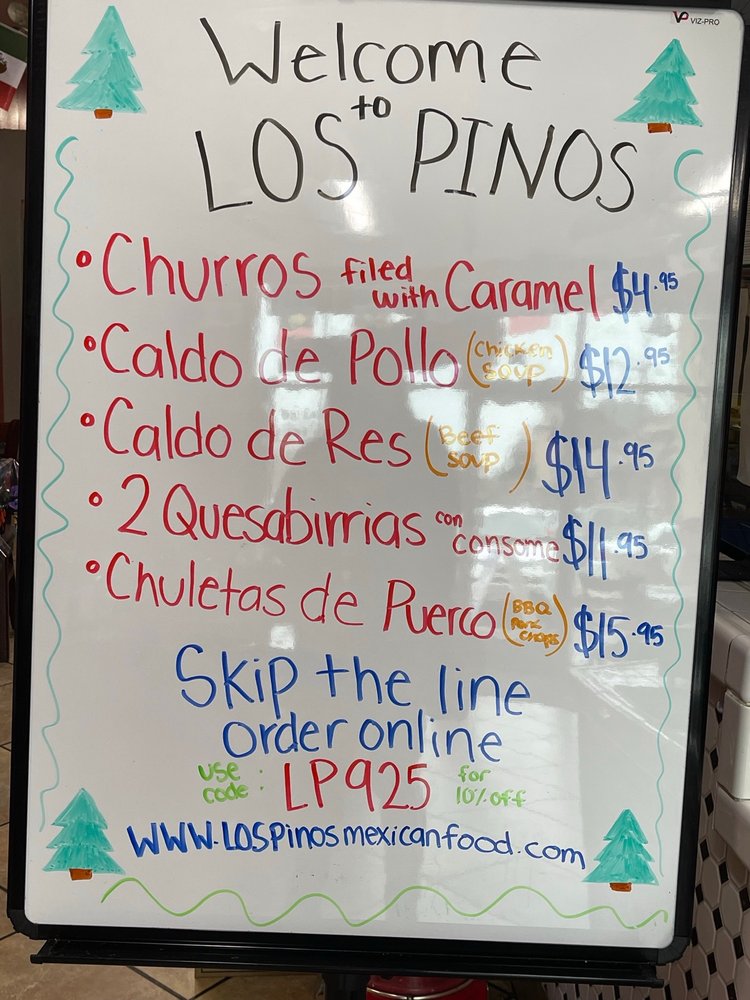 VP VIZ-PRO
Welcome
to
LOS PINOS
• Churros filed with Caramel $4.95
• Caldo de Pollo (Chicken Soup) $12.95
• Caldo de Res (Beef Soup) $14.95
• 2 Quesabirrias con consome $11.95
• Chuletas de Puerco (BBQ Pork Chops) $15.95
Skip the line
order online
use code: LP925 for 10% off
www.LOSPinosmexicanfood.com